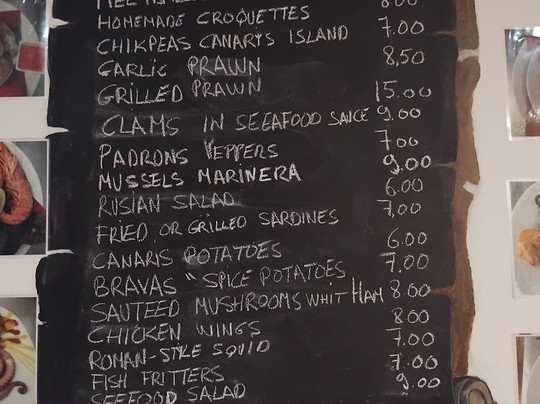 HOMEMADE CROQUETTES 8.00
CHIKPEAS CANARYS ISLAND 7.00
GARLIC PRAWN 8,50
GRILLED PRAWN 15.00
CLAMS IN SEEAFOOD SAUCE 9.00
PADRONS PEPPERS 7.00
MUSSELS MARINERA 9.00
RUSIAN SALAD 6.00
FRIED OR GRILLED SARDINES 7,00
CANARIS POTATOES 6.00
BRAVAS " SPICE POTATOES 7.00
SAUTEED MUSHROOMS WHIT HAM 8.00
CHICKEN WINGS 800
ROMAN-STYLE SQUID 7.00
FISH FRITTERS 7.00
SEEFOOD SALAD 9.00